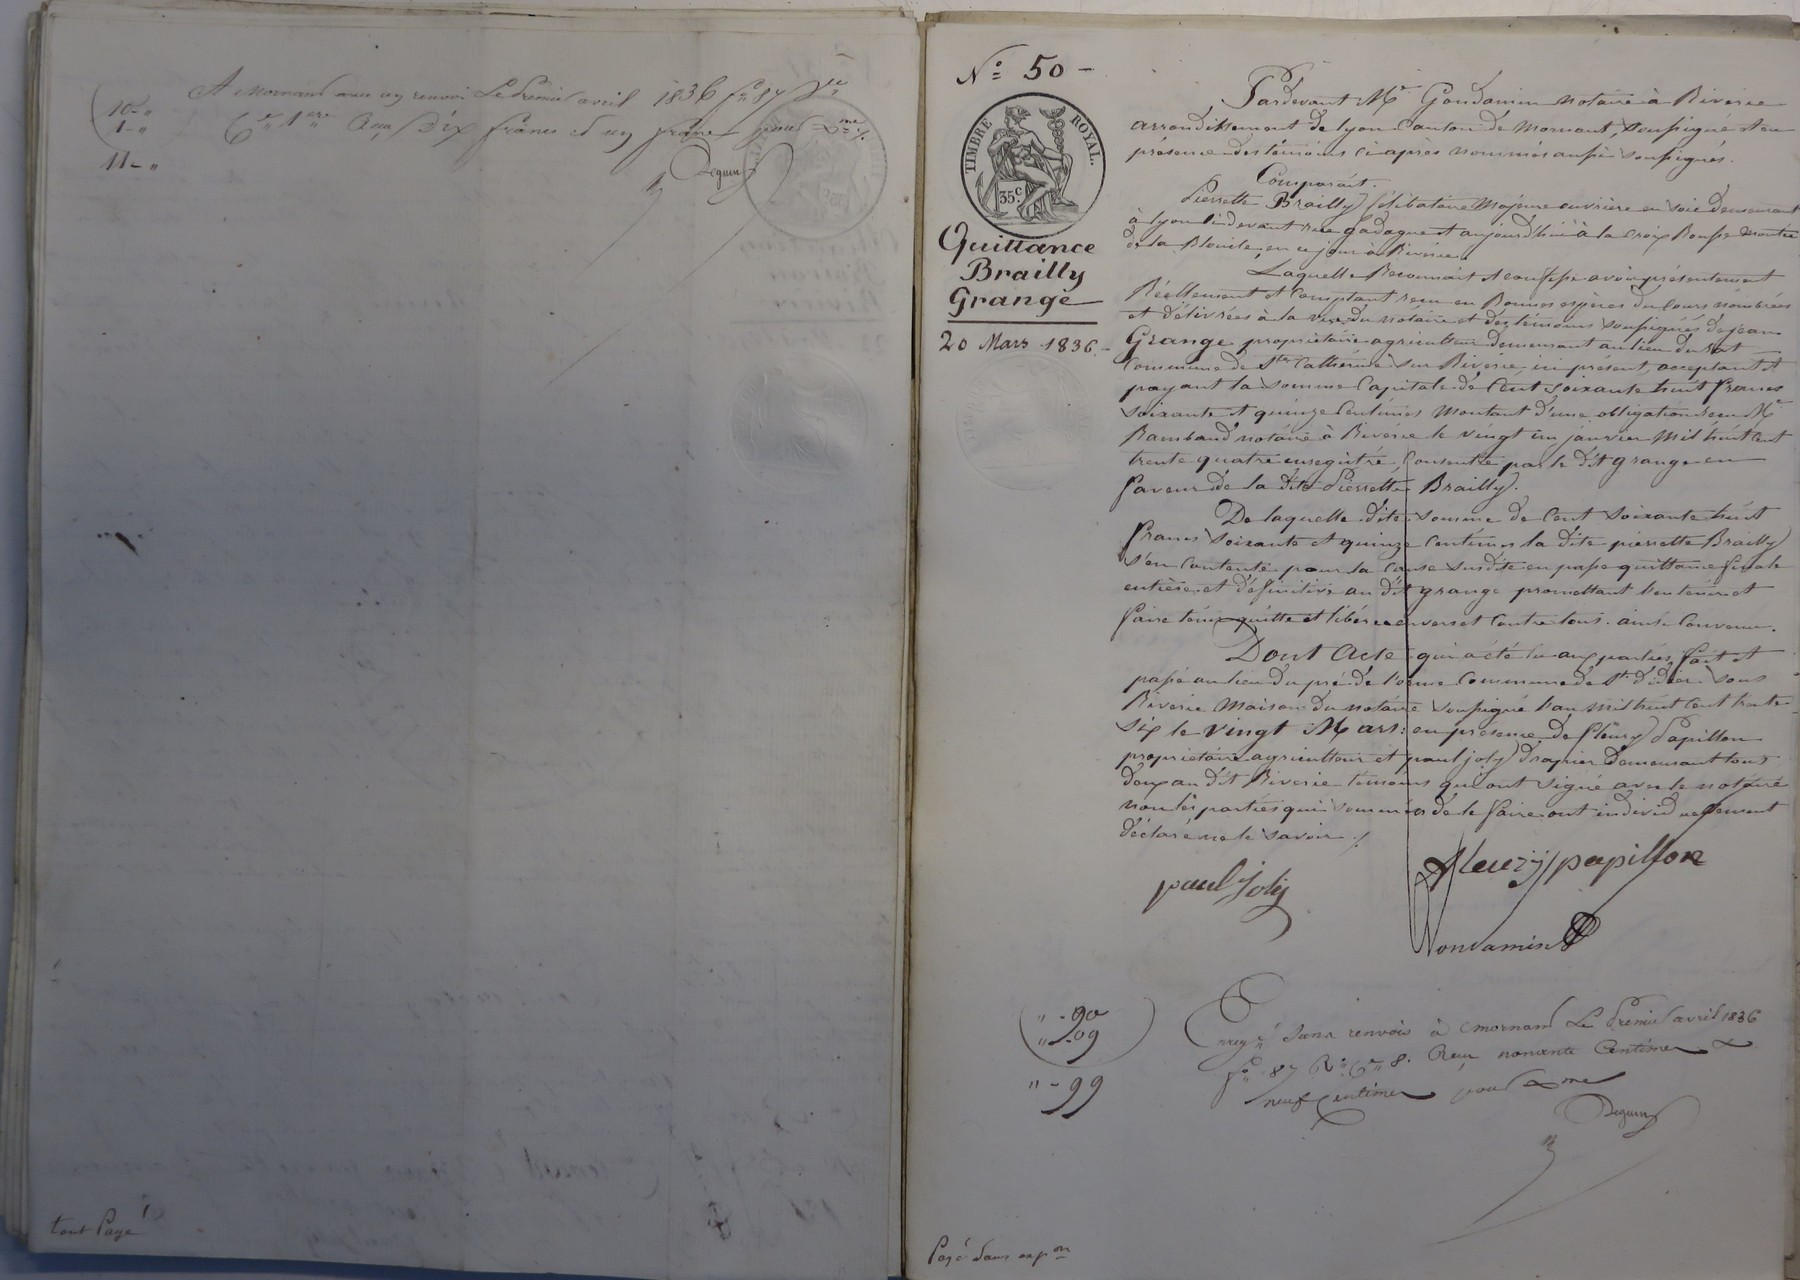 A Mornant avec un renvoi Le premier avril 1836 f° 87 V°
Ce 1ere Reçu Dix francs et un franc pour Xme
10 - "
1 - "
11 - "
Deguin
tout Payé
N° 50 -
TIMBRE ROYAL.
35 c.
Quittance
Brailly
Grange
20 Mars 1836 -
Pardevant Me Gondamin notaire à Riverie
arrondissement de Lyon Canton de Mornant, soussigné et en
présence des témoins ci après nommés aussi soussignés.
Comparait.
Pierrette Brailly Célibataire Majeure ouvrière en soie demeurant
à Lyon ci devant rue gadagne et aujourd'hui à la Croix Rousse montée
de la Boucle, en ce jour à Riverie.
Laquelle Reconnait et confesse avoir présentement
Réellement et comptant reçu en Bonnes espèces du Cours nombrées
et délivrées à la vue du notaire et des témoins soussignés de jean
Grange propriétaire agriculteur demeurant au lieu du rat
Commune de Ste Catherine sur Riverie, ici présent, acceptant et
payant la somme Capitale de Cent soixante huit francs
soixante et quinze Centimes Montant d'une obligation reçu Me
Rambaud notaire à Riverie le vingt un janvier Mil huit Cent
trente quatre enregistré, Consentie par le dit grange en
faveur de la dite Pierrette Brailly.
De laquelle dite somme de Cent soixante huit
francs soixante et quinze Centimes la dite pierrette Brailly
s'en Contente pour la Cause susdite en passe quittance finale
entière et définitive au dit grange promettant l'en tenir et
faire tenir quitte et libéré envers et Contre tous. ainsi Convenu.
Dont Acte qui a été lu aux parties, fait et
passé au lieu du pré de l'orme Commune de St didier sous
Riverie Maison du notaire soussigné l'an mil huit Cent trente
six le vingt Mars : en présence de fleury Papillon
propriétaire agriculteur et paul joly drapier demeurant tous
deux au dit Riverie témoins qui ont signé avec le notaire
non les parties qui sommées de le faire ont individuellement
déclaré ne le savoir ./.
paul Joly
fleury papillon
Gondamin
" - 90
" - 09
" - 99
Enregé Sans renvois à Mornant Le premier avril 1836
f° 87 V° Ce 8. Reçu nonante Centimes &
neuf Centimes pour Xme
Deguin
Payé dans expon